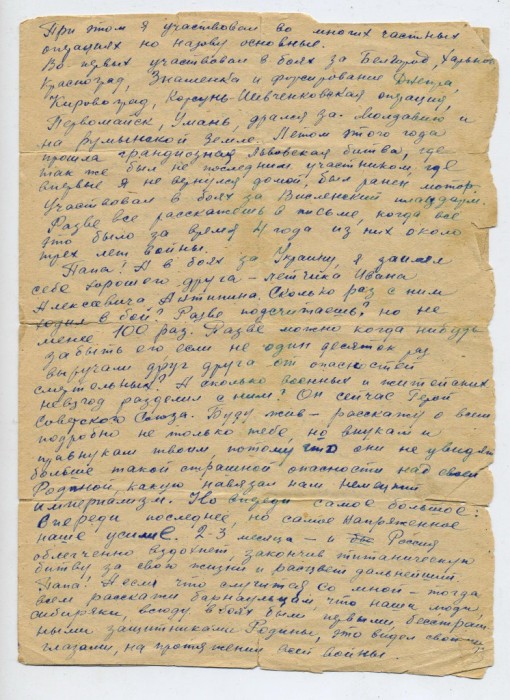 При этом я участвовал во многих частных
опирациях но назову основные.
Во первых участвовал в боях за Белгород, Харьков
Красноград, Знаменка и форсирование Днепра,
Кировоград, Корсунь-Шевченковская опирация,
Первомайск, Умань, дрался за Молдавию и
на румынской земле. Летом этого года
прошла грандиозная Львовская битва, где
так же был не последним участником, где
впервые я не вернулся домой, был ранен мотор.
Участвовал в боях за Висленский плацдарм.
Разве все расскажешь в письме, когда все
это было за время 4 года из них около
трех лет войны.
Папа! А в боях за Украину, я нашел
себе хорошего друга - летчика Ивана
Алексевича Антипина. Сколько раз с ним
ходил в бой? Разве подсчитаешь? но не
менее 100 раз. Разве можно когда нибудь
забыть его если не один десяток раз
выручали друг друга от опасностей
смертельных? А сколько военных и житейских
невзгод разделил с ним? Он сейчас Герой
Советского Союза. Буду жив - расскажу о всем
подробно не только тебе, но внукам и
правнукам твоим, потому что они не увидят
больше такой страшной опасности над своей
Родиной, какую навязал нам немецкий
империализм. Но впереди самое большое:
Впереди последнее, но самое напряженное
наше усилие. 2-3 месяца - и Россия
облегченно вздохнет, закончив титаническую
битву за свою жизнь и расцвет дальнейший.
Папа! А если что случится со мной - тогда
всем расскажи барнаульцам, что наши люди,
сибиряки, всюду в боях были первыми, бесстраш
ными защитниками Родины, это видел своими
глазами, на протяжении всей войны.